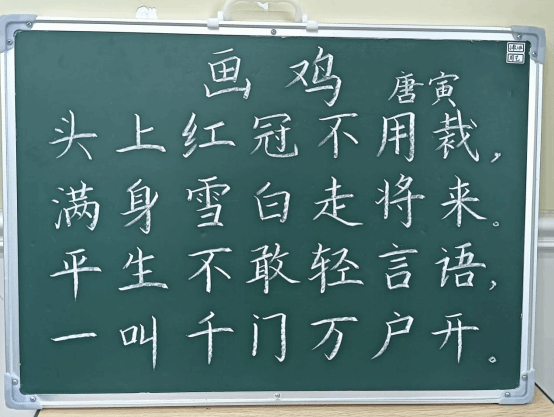 画鸡 唐寅
头上红冠不用裁，
满身雪白走将来。
平生不敢轻言语，
一叫千门万户开。